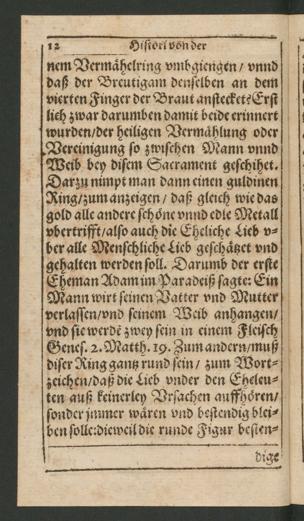 12 Histori von der
nem Vermähelring vmbgiengen/ vnnd
daß der Breutigam denselben an dem
vierten Finger der Braut anstecket? Erst
lich zwar darumben damit beide erinnert
wurden/der heiligen Vermählung oder
Vereinigung so zwischen Mann vnnd
Weib bey disem Sacrament geschihet.
Darzu nimpt man dann einen guldinen
Ring/zum anzeigen/ daß gleich wie das
gold alle andere schöne vnnd edle Metall
vbertrifft/also auch die Eheliche Lieb v-
ber alle Menschliche Lieb geschätzet vnd
gehalten werden soll. Darumb der erste
Eheman Adam im Paradeiß sagte: Ein
Mann wirt seinen Vatter vnd Mutter
verlassen/vnd seinem Weib anhangen/
vnd sie werdē zwey sein in einem Fleisch
Genes. 2. Matth. 19. Zum andern/muß
diser Ring gantz rund sein/ zum Wort-
zeichen/daß die Lieb vnder den Eheleu-
ten auß keinerley Vrsachen auffhören/
sonder jmmer wären vnd bestendig blei-
ben solle:dieweil die runde Figur besten-
dige